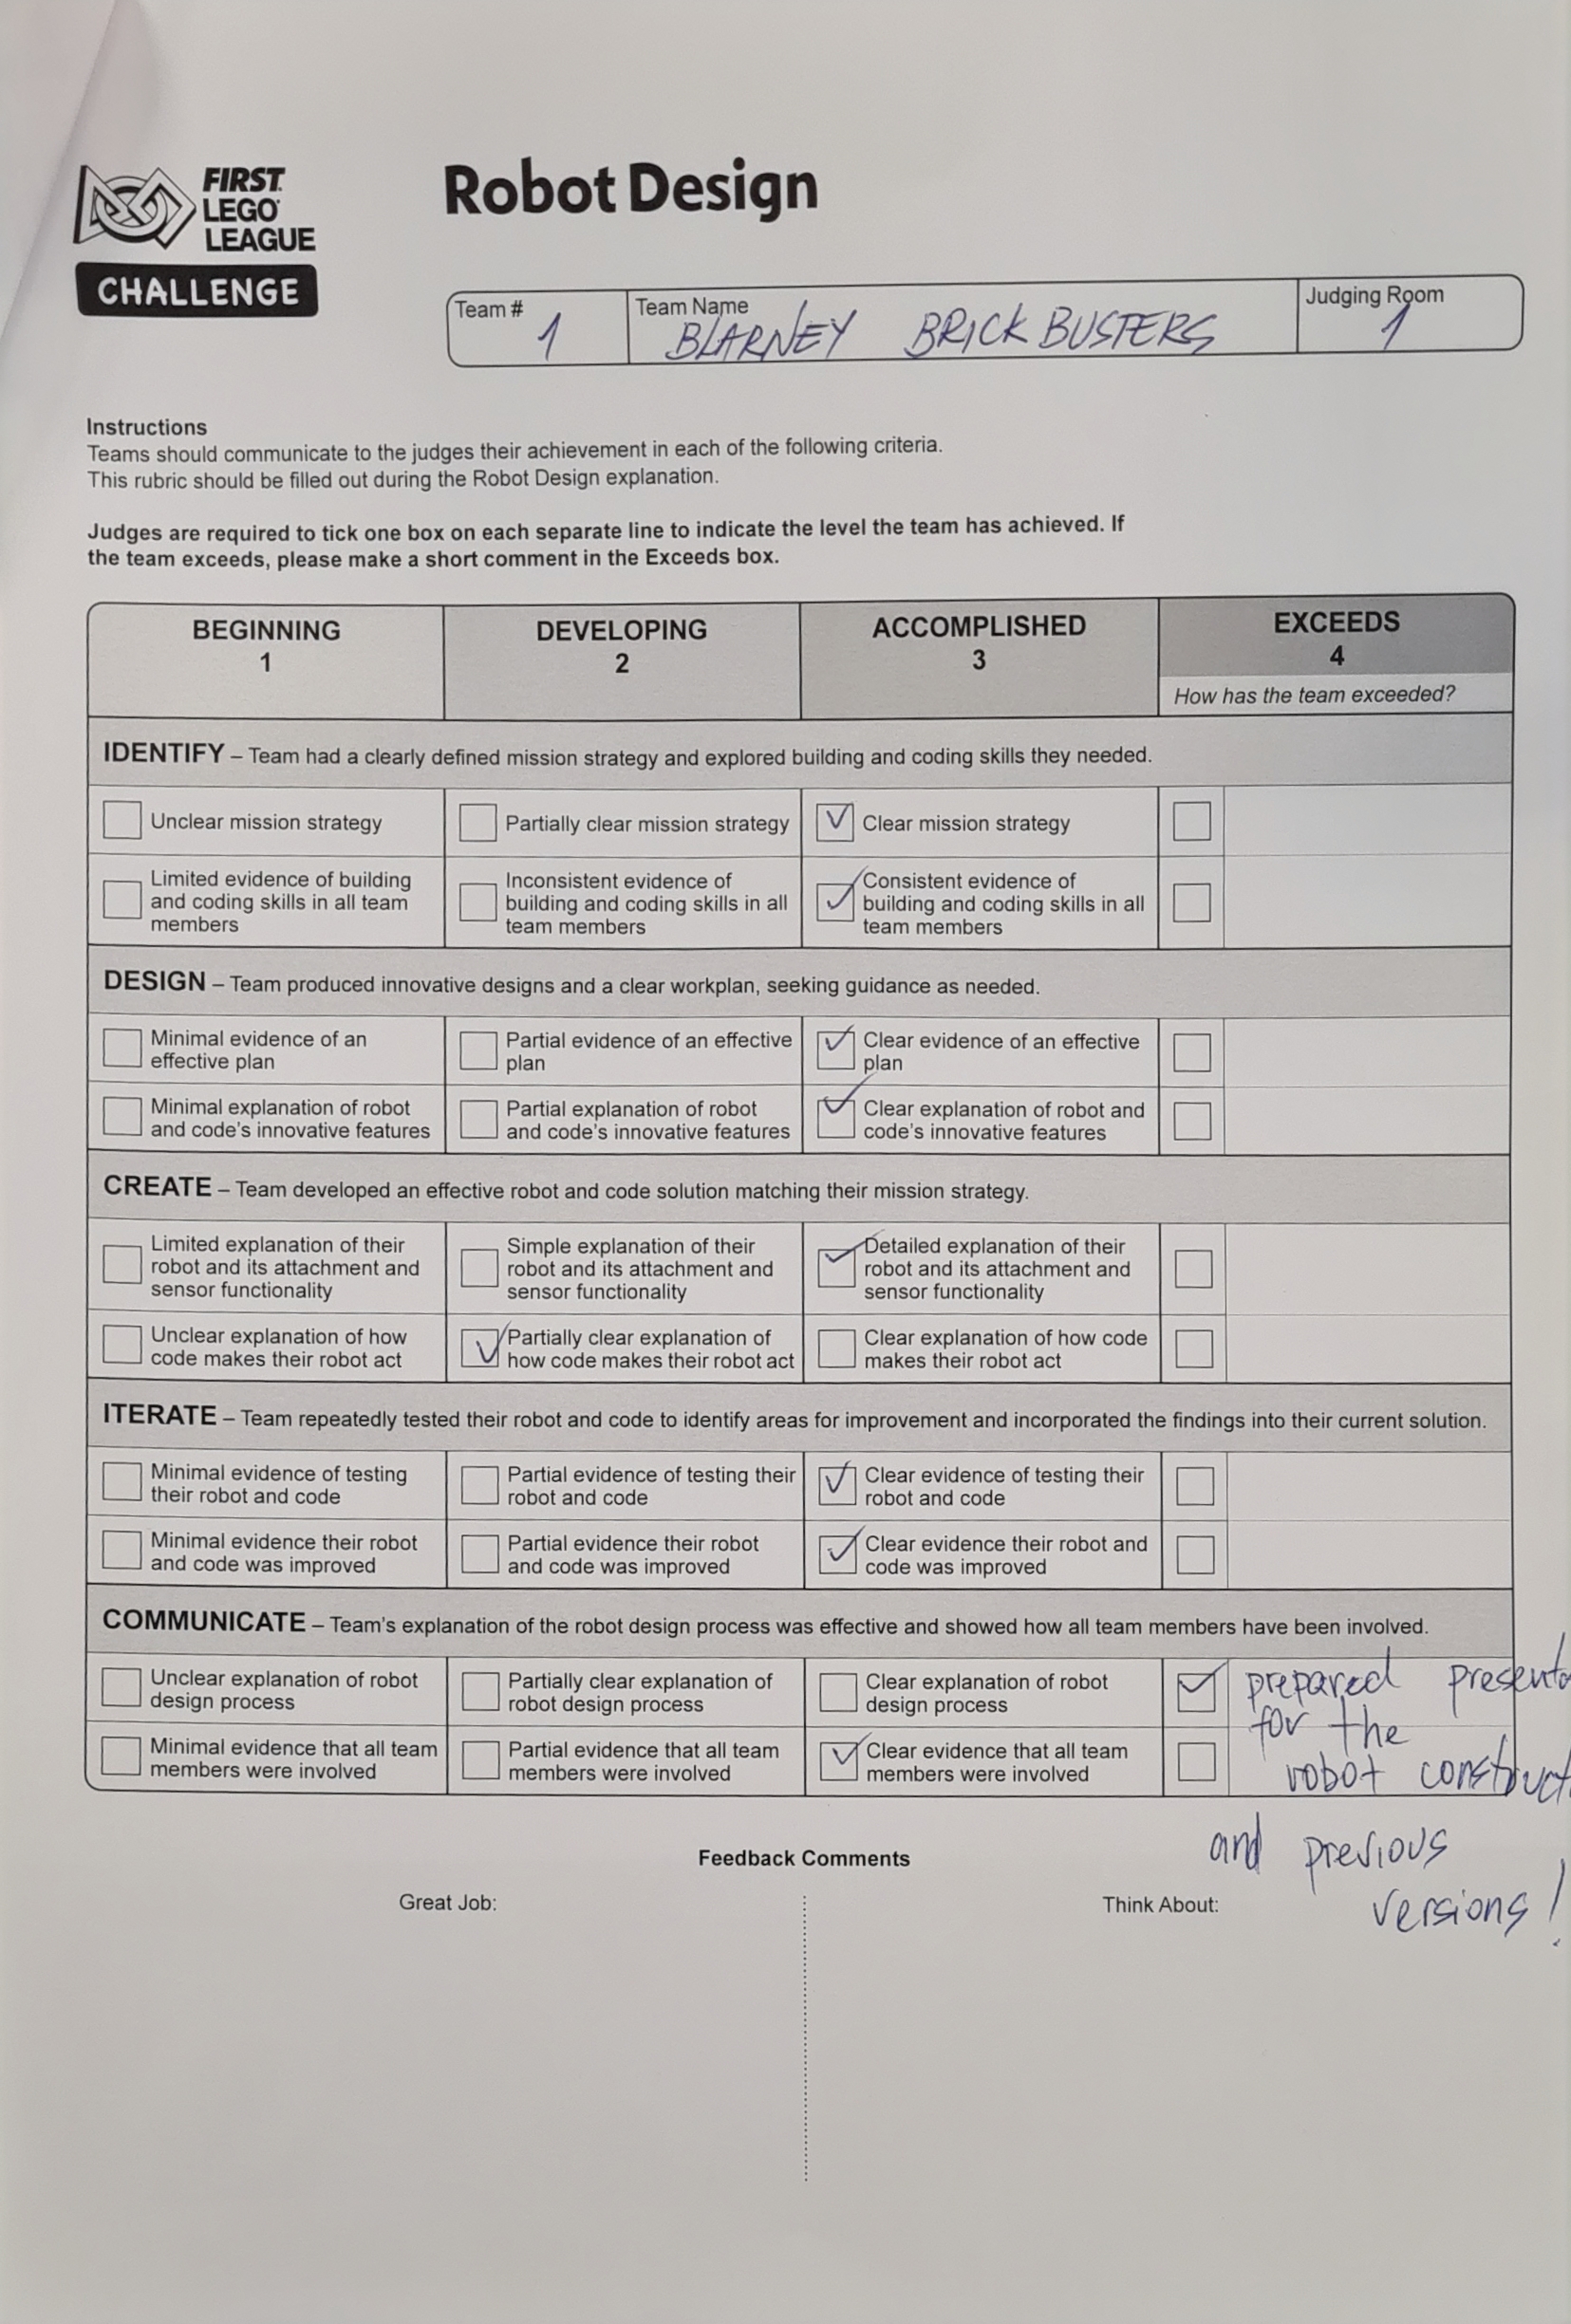 FIRST
LEGO
LEAGUE
CHALLENGE
Robot Design
Team #
1
Team Name
BLARNEY BRICK BUSTERS
Judging Room
1
Instructions
Teams should communicate to the judges their achievement in each of the following criteria.
This rubric should be filled out during the Robot Design explanation.
Judges are required to tick one box on each separate line to indicate the level the team has achieved. If
the team exceeds, please make a short comment in the Exceeds box.
BEGINNING
1
DEVELOPING
2
ACCOMPLISHED
3
EXCEEDS
4
How has the team exceeded?
IDENTIFY – Team had a clearly defined mission strategy and explored building and coding skills they needed.
Unclear mission strategy
Partially clear mission strategy
Clear mission strategy
Limited evidence of building
and coding skills in all team
members
Inconsistent evidence of
building and coding skills in all
team members
Consistent evidence of
building and coding skills in all
team members
DESIGN – Team produced innovative designs and a clear workplan, seeking guidance as needed.
Minimal evidence of an
effective plan
Partial evidence of an effective
plan
Clear evidence of an effective
plan
Minimal explanation of robot
and code's innovative features
Partial explanation of robot
and code's innovative features
Clear explanation of robot and
code's innovative features
CREATE – Team developed an effective robot and code solution matching their mission strategy.
Limited explanation of their
robot and its attachment and
sensor functionality
Simple explanation of their
robot and its attachment and
sensor functionality
Detailed explanation of their
robot and its attachment and
sensor functionality
Unclear explanation of how
code makes their robot act
Partially clear explanation of
how code makes their robot act
Clear explanation of how code
makes their robot act
ITERATE – Team repeatedly tested their robot and code to identify areas for improvement and incorporated the findings into their current solution.
Minimal evidence of testing
their robot and code
Partial evidence of testing their
robot and code
Clear evidence of testing their
robot and code
Minimal evidence their robot
and code was improved
Partial evidence their robot
and code was improved
Clear evidence their robot and
code was improved
COMMUNICATE – Team's explanation of the robot design process was effective and showed how all team members have been involved.
Unclear explanation of robot
design process
Partially clear explanation of
robot design process
Clear explanation of robot
design process
Minimal evidence that all team
members were involved
Partial evidence that all team
members were involved
Clear evidence that all team
members were involved
prepared presenta
for the
robot construct
and previous
versions!
Feedback Comments
Great Job:
Think About: